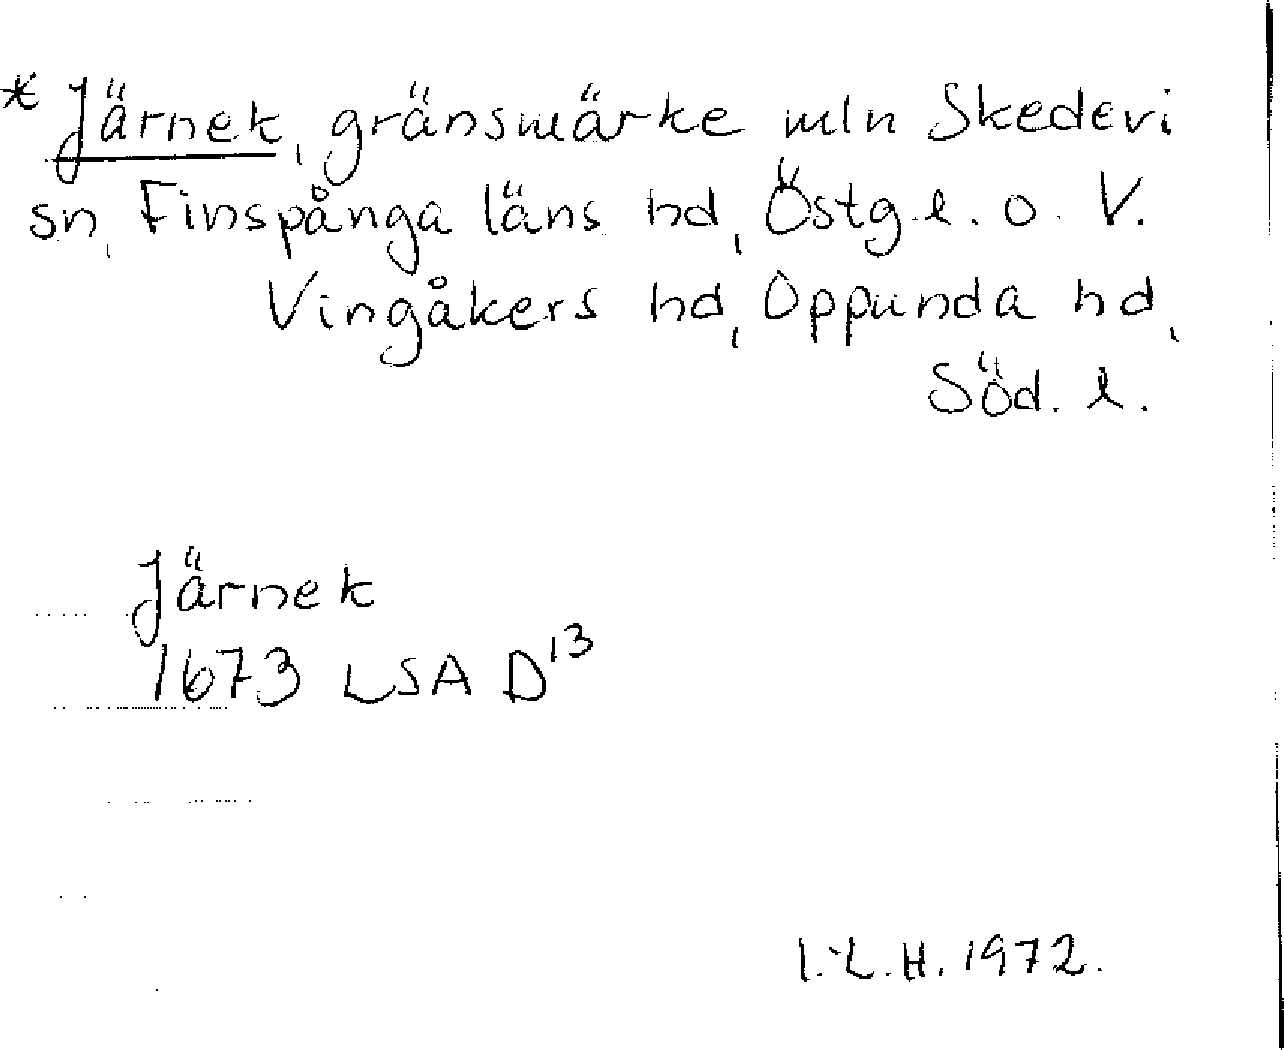 * Järnek, gränsmärke mln Skedevi
sn, Finspånga läns hd, Östg.l. o. V.
Vingåkers hd, Oppunda hd,
Söd. l.
Järnek
1673 LSA D¹³
I.L.H. 1972.